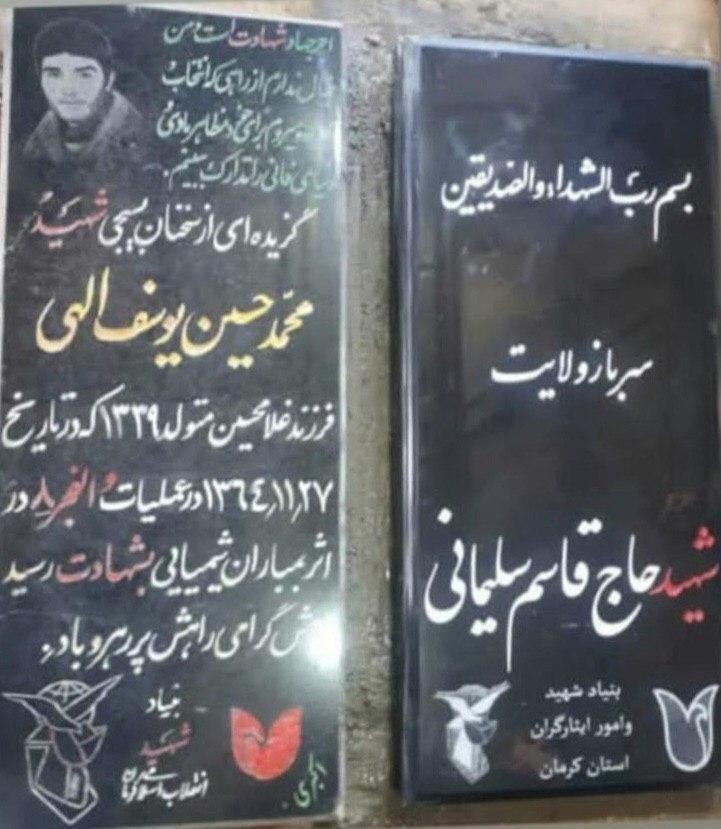 بسم رب الشهداء والصدیقین
سرباز ولایت
شهید حاج قاسم سلیمانی
بنیاد شهید
وامور ایثارگران
استان کرمان
اجر جهاد شهادت است و من
ندارم از راهی که انتخاب
میروم برای خود مظاهر مادی
فانی را تدارک ببینم.
گزیده ای از سخنان بسیجی شهید
محمد حسین یوسف الهی
فرزند غلامحسین متولد ۱۳۳۹ که در تاریخ
۱۳۶۴،۱۱،۲۷ در عملیات والفجر ۸ در
اثر بمباران شیمیایی بشهادت رسید
گرامی راهش پر رهرو باد.
بنیاد
شهید
انقلاب اسلامی